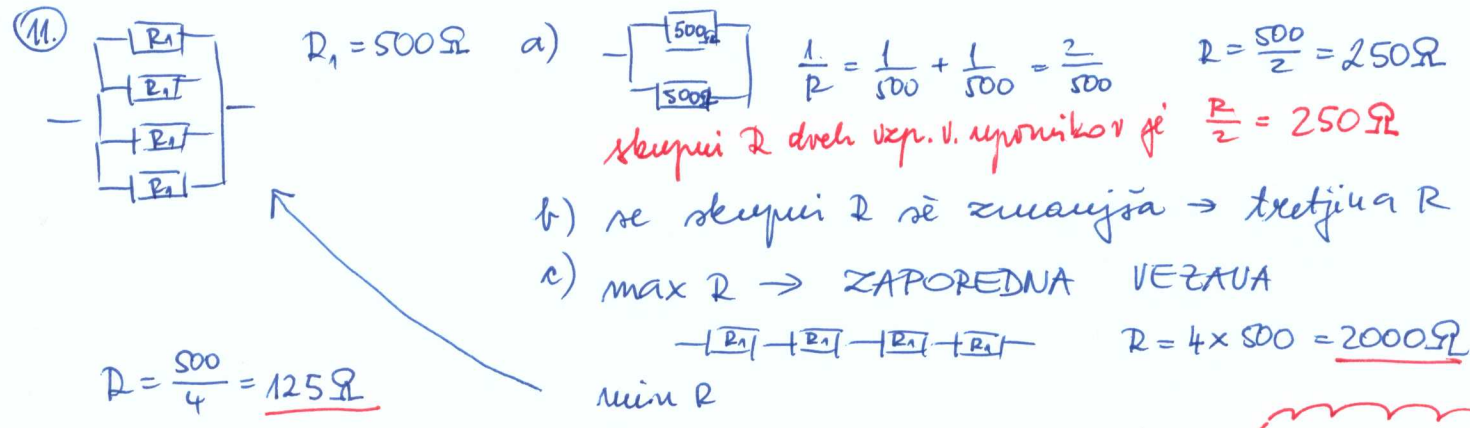 11.
R₁
R₁
R₁
R₁
R₁ = 500Ω
a)
500Ω
500Ω
1/R = 1/500 + 1/500 = 2/500
R = 500/2 = 250Ω
skupni R dveh vzp. v. upornikov je R/2 = 250Ω
b) se skupni R še zmanjša → tretjina R
c) max R → ZAPOREDNA VEZAVA
R₁ R₁ R₁ R₁
R = 4 × 500 = 2000Ω
min R
R = 500/4 = 125Ω